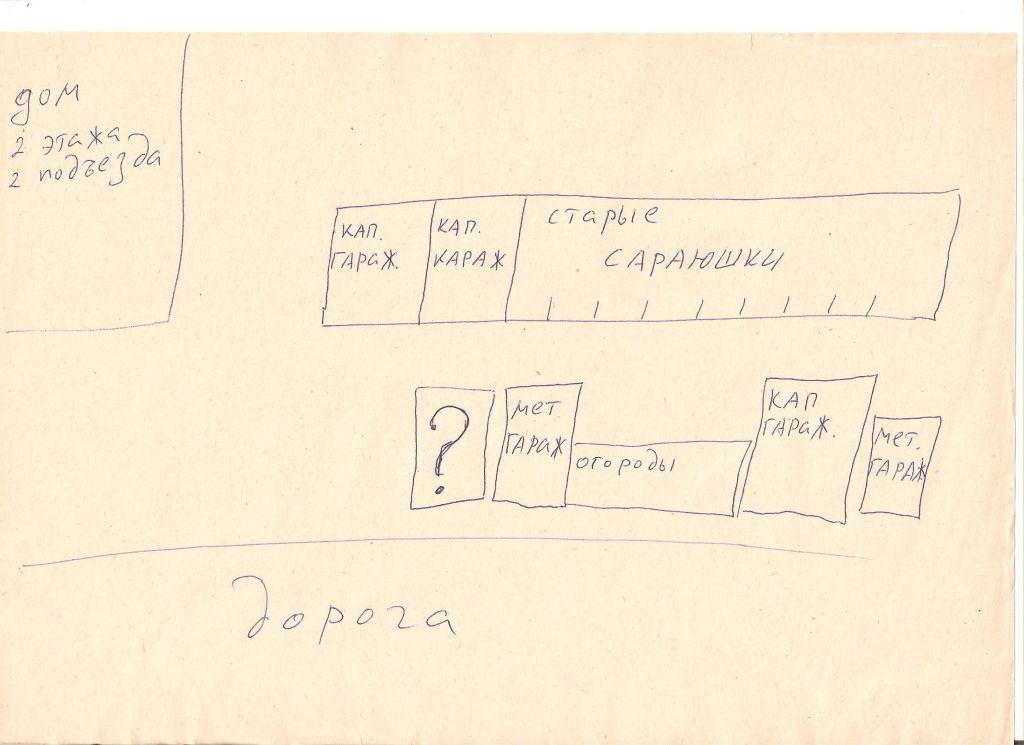 дом
2 этажа
2 подъезда
КАП.
ГАРАЖ.
КАП.
КАРАЖ
старые
САРАЮШКИ
?
мет.
ГАРАЖ
огороды
КАП
ГАРАЖ.
мет.
ГАРАЖ
дорога